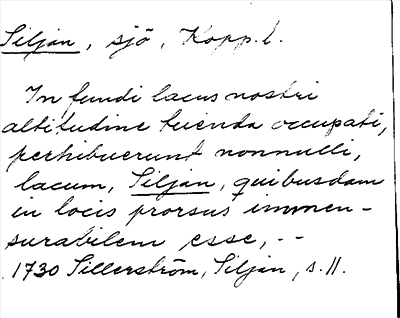 Siljan, sjö, Kopp. l.
In fundi lacus nostri
altitudine tuenda occupati,
perhibuerunt nonnulli,
lacum, Siljan, quibusdam
in locis prorsus immen-
surabilem esse, --
1730 Sillerström, Siljan, s. 11.